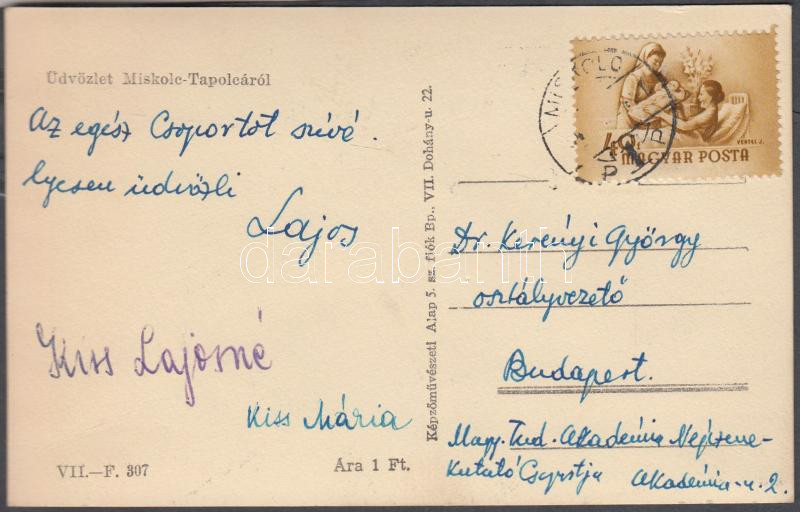 Üdvözlet Miskolc-Tapolcáról
Az egész Csoportot szívé-
lyesen üdvözli
Lajos
Kiss Lajosné
Kiss Mária
VII.—F. 307
Ára 1 Ft.
Képzőművészeti Alap 5. sz. fiók Bp., VII. Dohány-u. 22.
MISKOLC
40f
MAGYAR POSTA
VERTEL J.
Dr. Kerényi György
osztályvezető
Budapest.
Magy. Tud. Akadémia Népzene-
kutató Csoportja Akadémia-u. 2.
darabanth